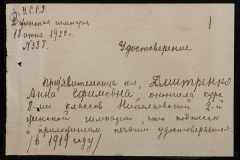 У.С.С.Р.
18 июня 1922 г.
№ 338.
Удостоверение
Пред'явительница сего, Дмитренко
Анна Ефимовна, окончила курс
классов Николаевской 2-й
женской гимназии, что подписом
и приложением печати удостоверяется
/в 1919 году/